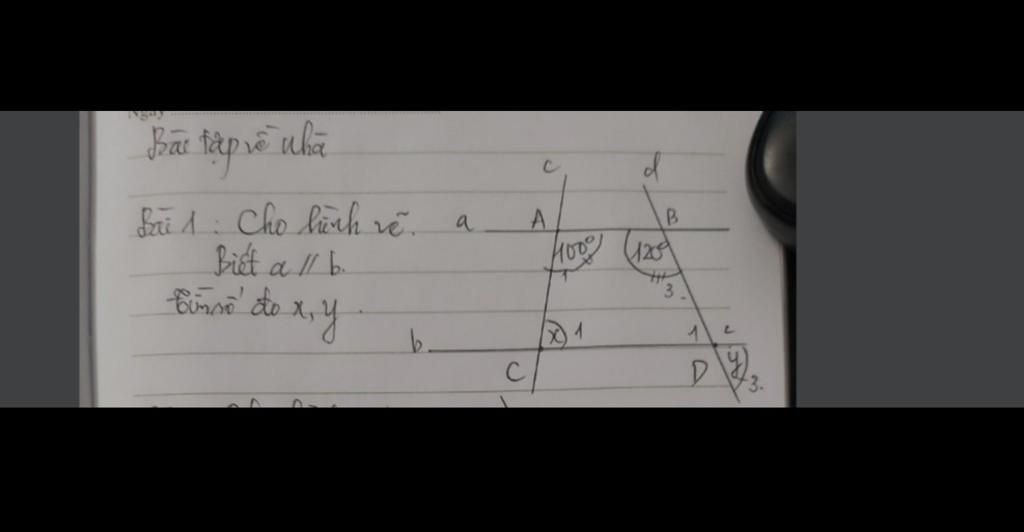 Bài tập về nhà
Bài 1 : Cho hình vẽ.
Biết a // b.
Tìm số đo x, y.
c
d
a
A
B
100°
1
120°
3.
b
x
1
1
2
C
D
y
3.